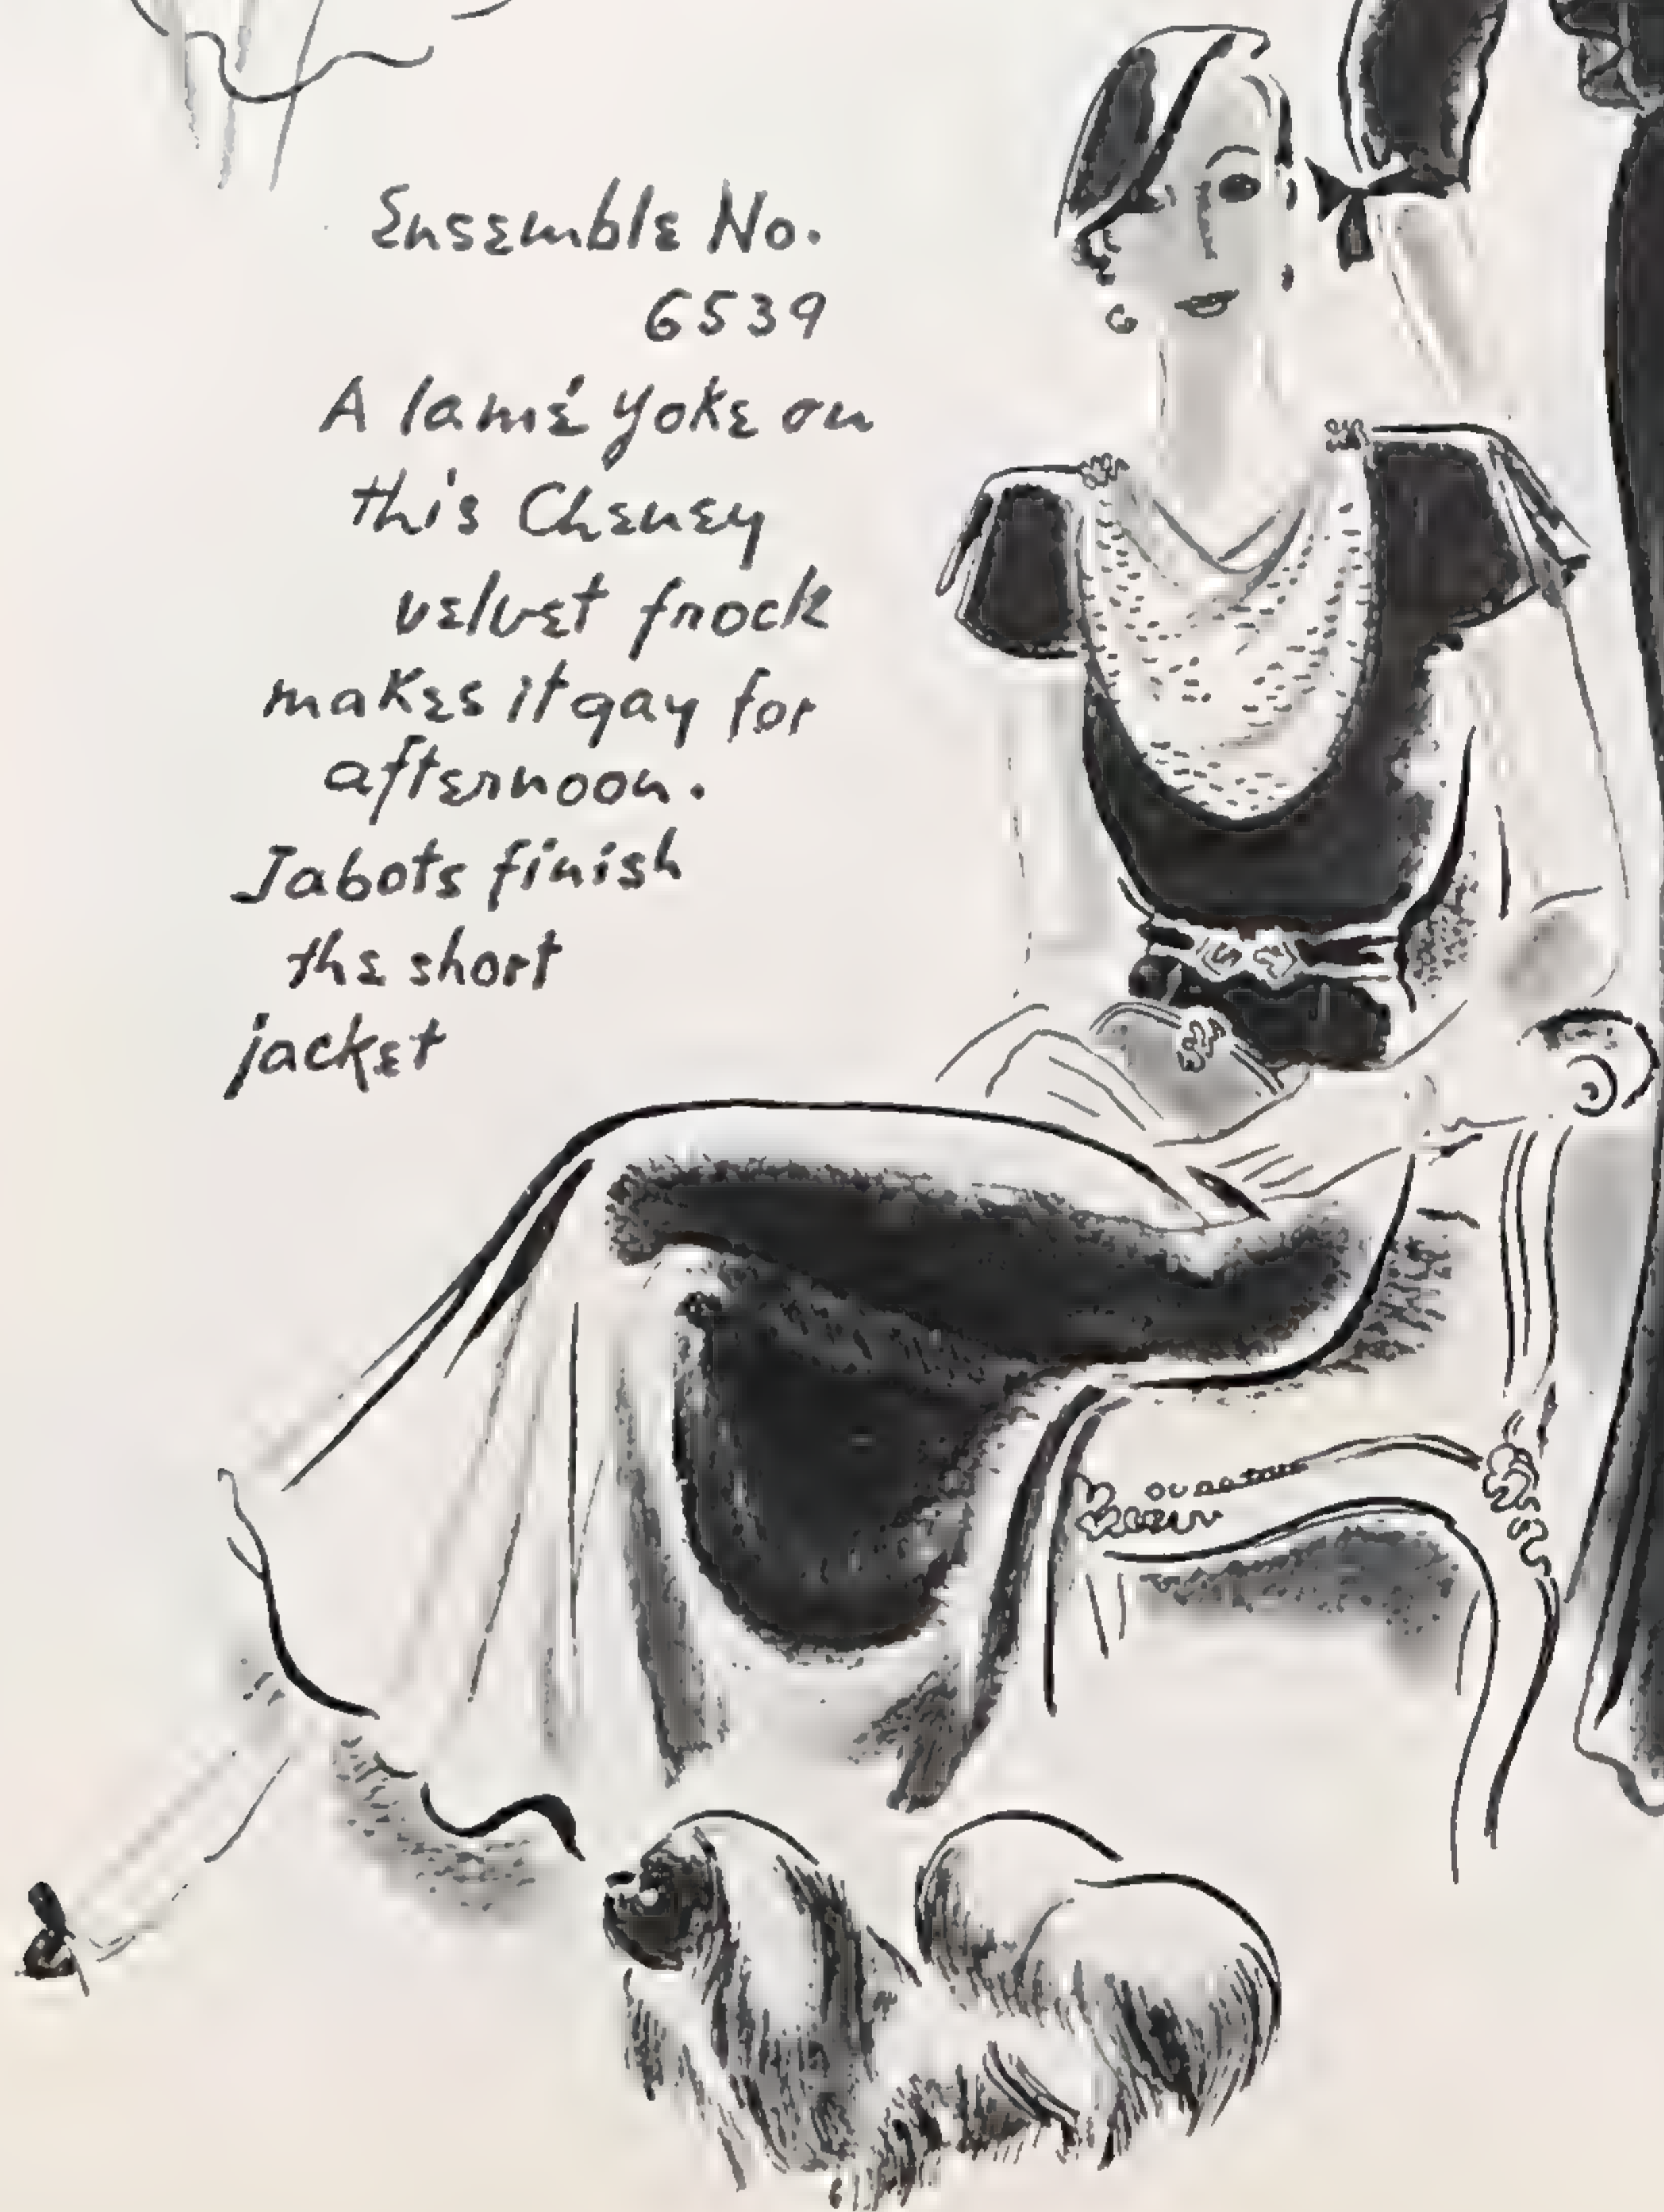 Ensemble No.
6539
A lamé yoke on
this Cheney
velvet frock
makes it gay for
afternoon.
Jabots finish
the short
jacket